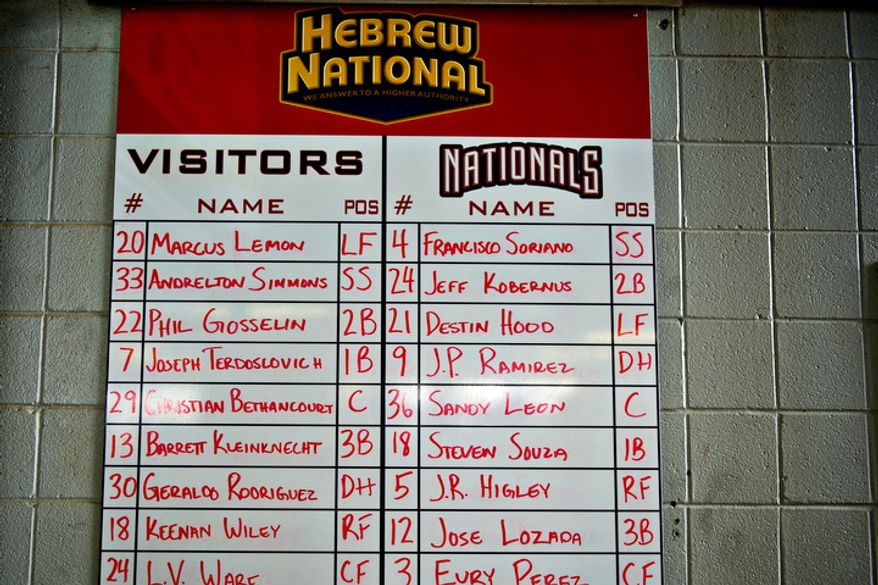 HEBREW
NATIONAL
WE ANSWER TO A HIGHER AUTHORITY
VISITORS NATIONALS
# NAME POS # NAME POS
20 MARCUS LEMON LF 4 FRANCISCO SORIANO SS
33 ANDRELTON SIMMONS SS 24 JEFF KOBERNUS 2B
22 PHIL GOSSELIN 2B 21 DESTIN HOOD LF
7 JOSEPH TERDOSLOVICH 1B 9 J.P. RAMIREZ DH
29 CHRISTIAN BETHANCOURT C 36 SANDY LEON C
13 BARRETT KLEINKNECHT 3B 18 STEVEN SOUZA 1B
30 GERALDO RODRIGUEZ DH 5 J.R. HIGLEY RF
18 KEENAN WILEY RF 12 JOSE LOZADA 3B
24 L.V. WARE CF 3 EURY PEREZ CF